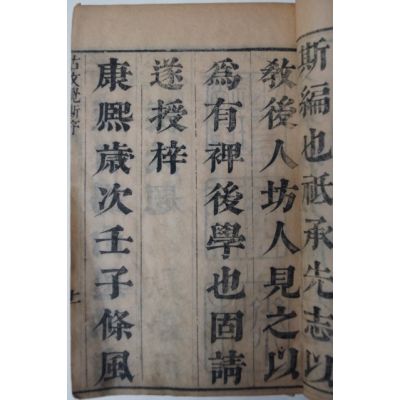 斯編也祗承先志以
教後人坊人見之以
為有裨後學也固請
遂授梓
康熙歲次壬子條風
古文覺斯序